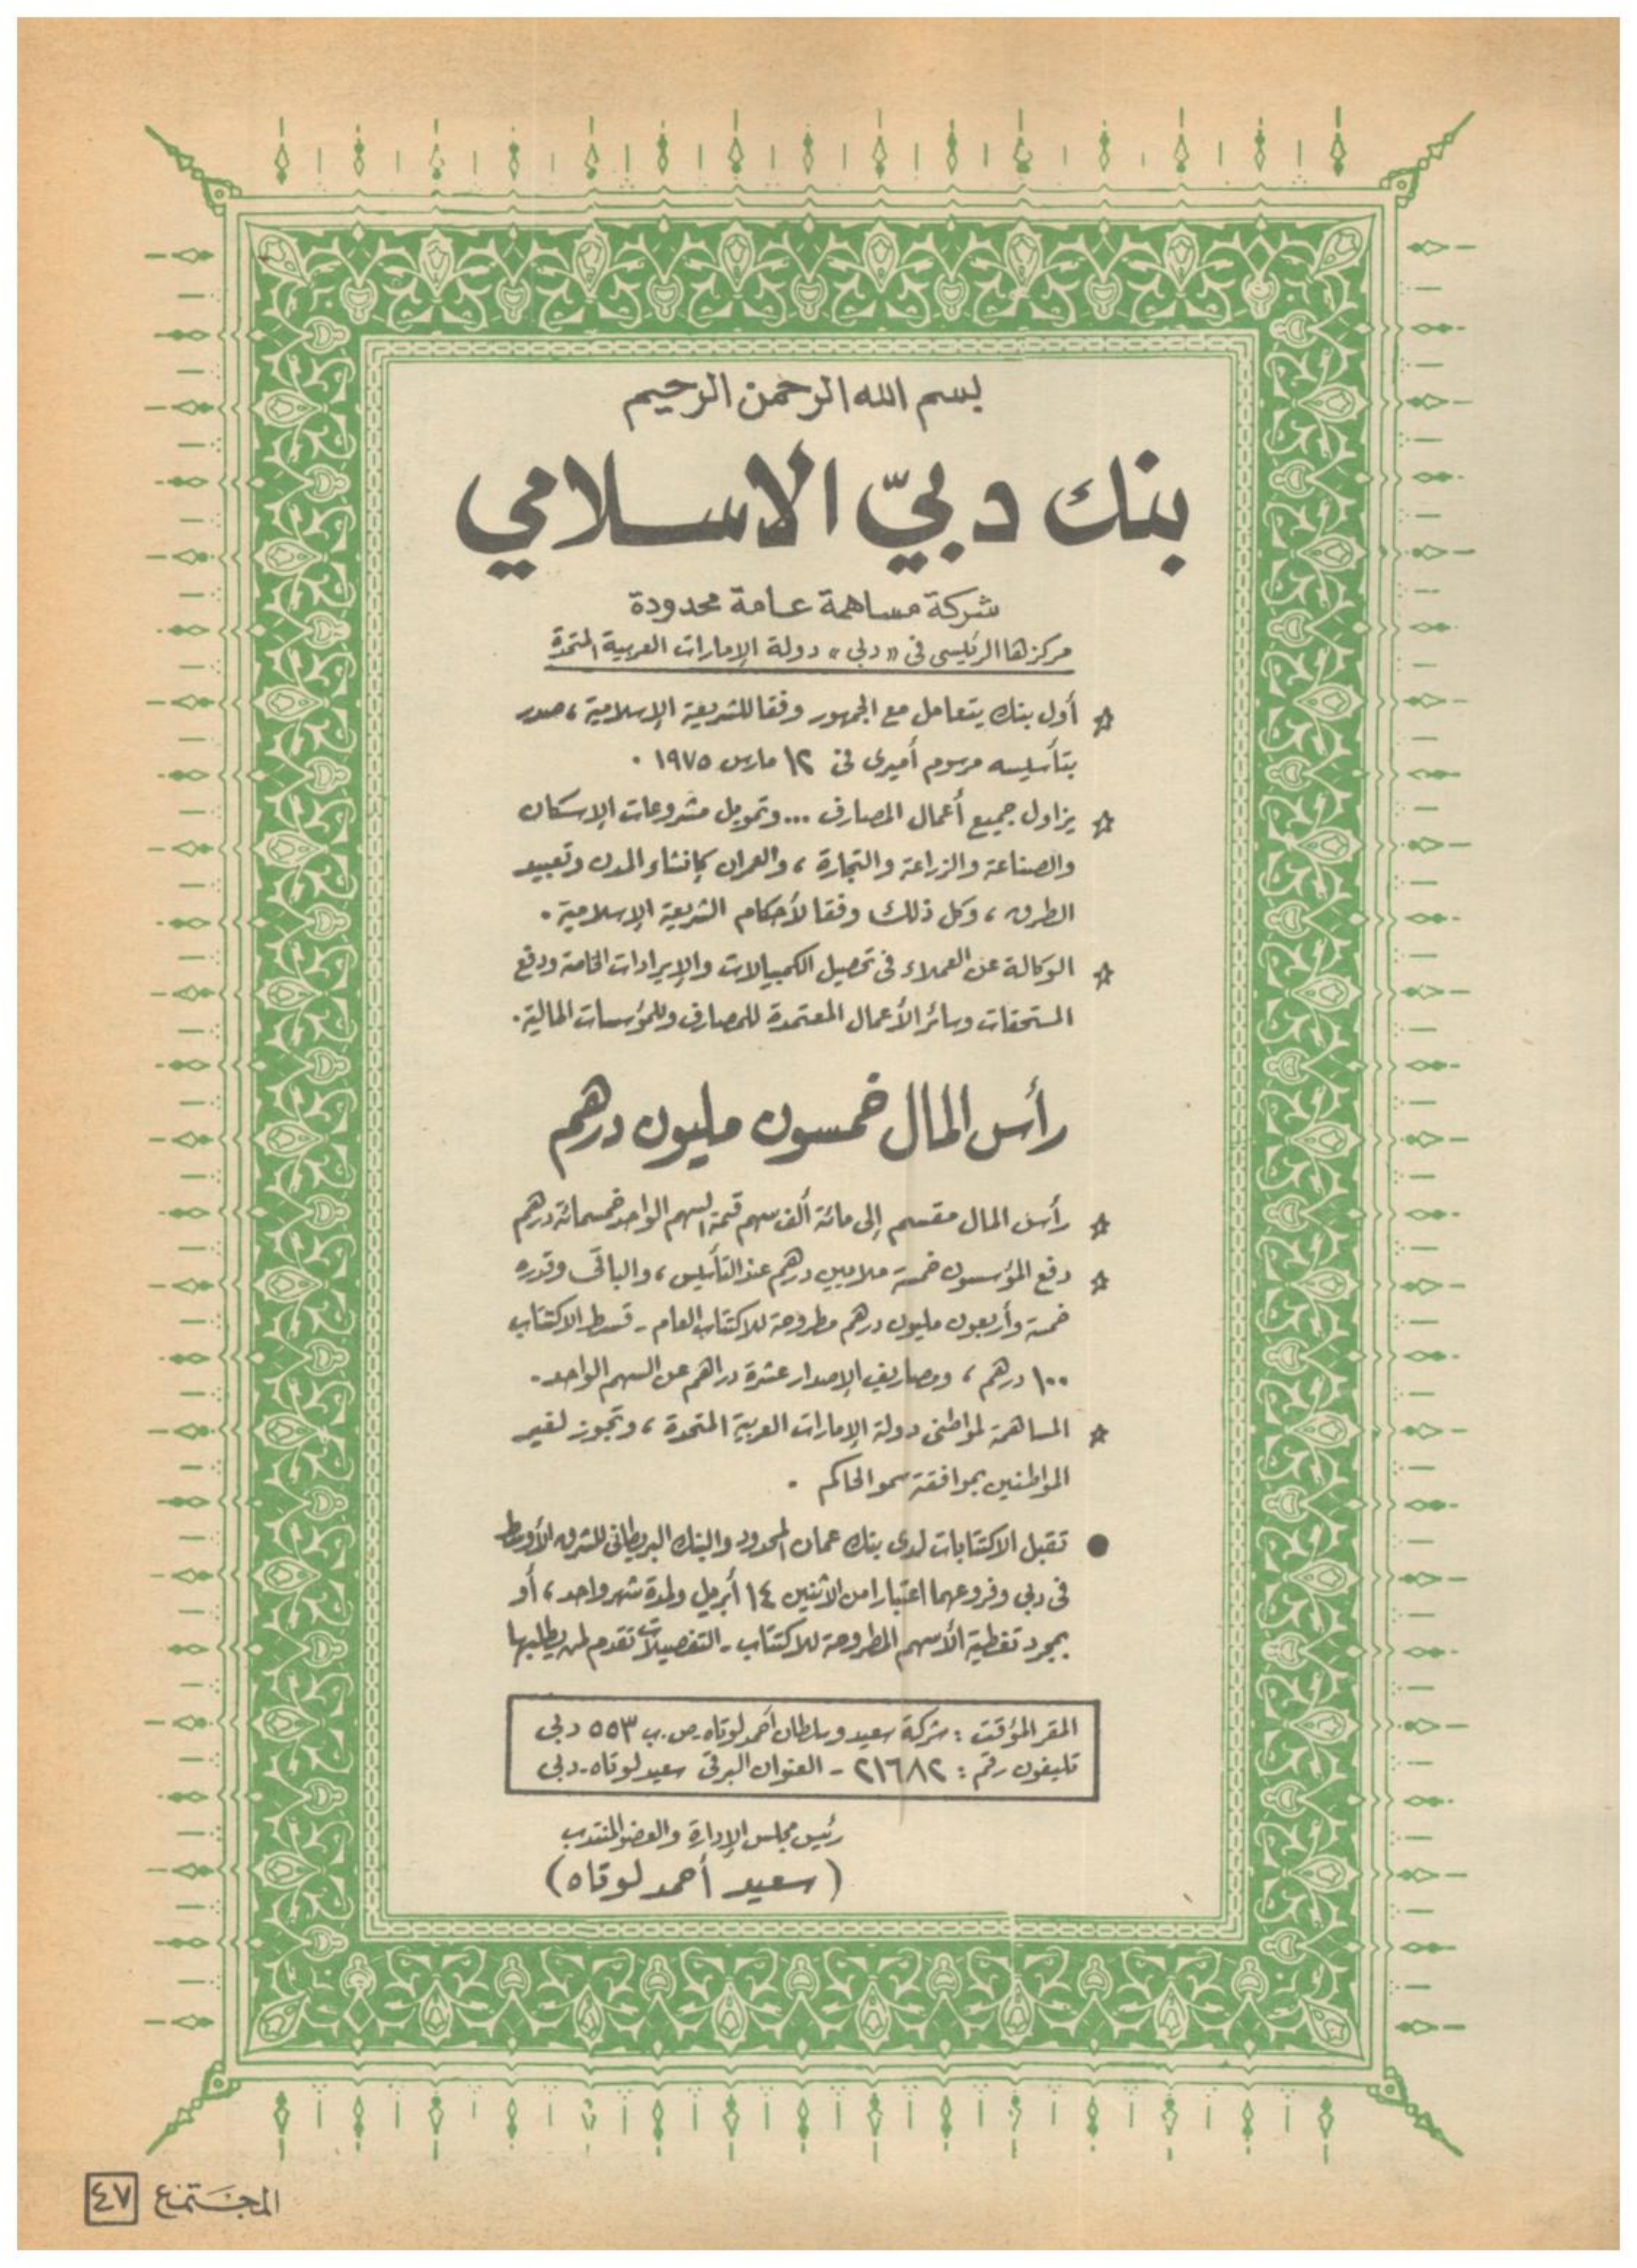 بسم الله الرحمن الرحيم
بنك دبيّ الاسلامي
شركة مساهمة عامة محدودة
مركزها الرئيسى فى «دبى» دولة الإمارات العربية المتحدة
☆ أول بنك يتعامل مع الجمهور وفقا للشريعة الإسلامية ، صدر
بتأسيسه مرسوم أميرى فى ١٢ مارس ١٩٧٥ .
☆ يزاول جميع أعمال المصارف ... وتمويل مشروعات الإسكان
والصناعة والزراعة والتجارة ، والعمران كإنشاء المدن وتعبيد
الطرق ، وكل ذلك وفقا لأحكام الشريعة الإسلامية .
☆ الوكالة عن العملاء فى تحصيل الكمبيالات والإيرادات الخاصة ودفع
المستحقات وسائر الأعمال المعتمدة للمصارف وللمؤسسات المالية .
رأس المال خمسون مليون درهم
☆ رأس المال مقسم إلى مائة ألف سهم قيمة السهم الواحد خمسمائة درهم
☆ دفع المؤسسون خمسة ملايين درهم عند التأسيس ، والباقى وقدره
خمسة وأربعون مليون درهم مطروحة للاكتتاب العام - قسط الاكتتاب
١٠٠ درهم ، ومصاريف الإصدار عشرة دراهم عن السهم الواحد -
☆ المساهمة لمواطنى دولة الإمارات العربية المتحدة ، وتجوز لغير
المواطنين بموافقة سمو الحاكم .
● تقبل الاكتتابات لدى بنك عمان المحدود والبنك البريطانى للشرق الأوسط
فى دبى وفروعهما اعتبارا من الاثنين ١٤ أبريل ولمدة شهر واحد ، أو
بمجرد تغطية الأسهم المطروحة للاكتتاب - التفصيلات تقدم لمن يطلبها
المقر المؤقت : شركة سعيد وسلطان أحمد لوتاه - ص . ب ٥٥٣ دبى
تليفون رقم : ٢١٦٨٢ - العنوان البرقى سعيد لوتاه - دبى
رئيس مجلس الإدارة والعضو المنتدب
(سعيد أحمد لوتاه)
المجتمع ٤٧